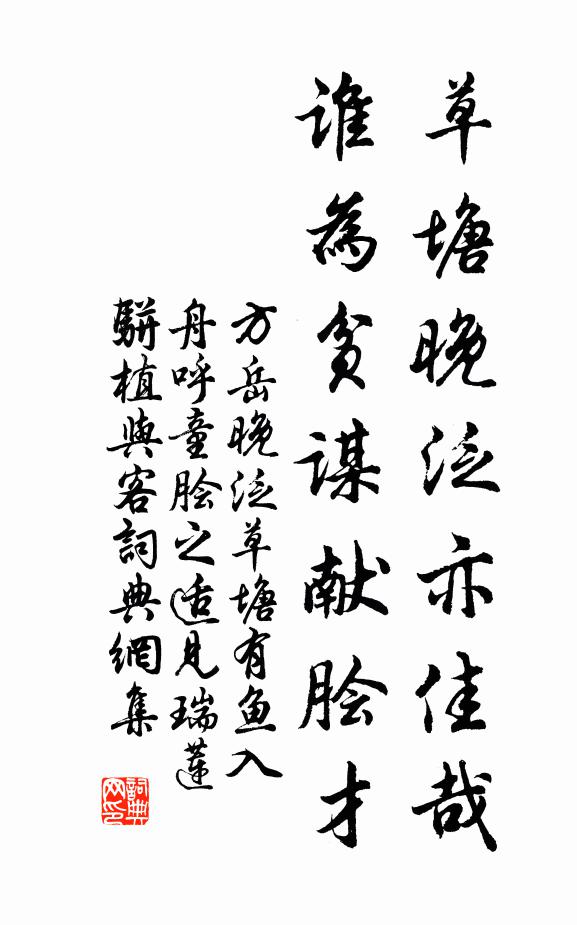 草塘晚泛亦佳哉
谁為贫谋献脍才
方岳晚泛草塘有鱼入
舟呼童脍之适见瑞莲
駢植與客詞典網集
詞典
网印